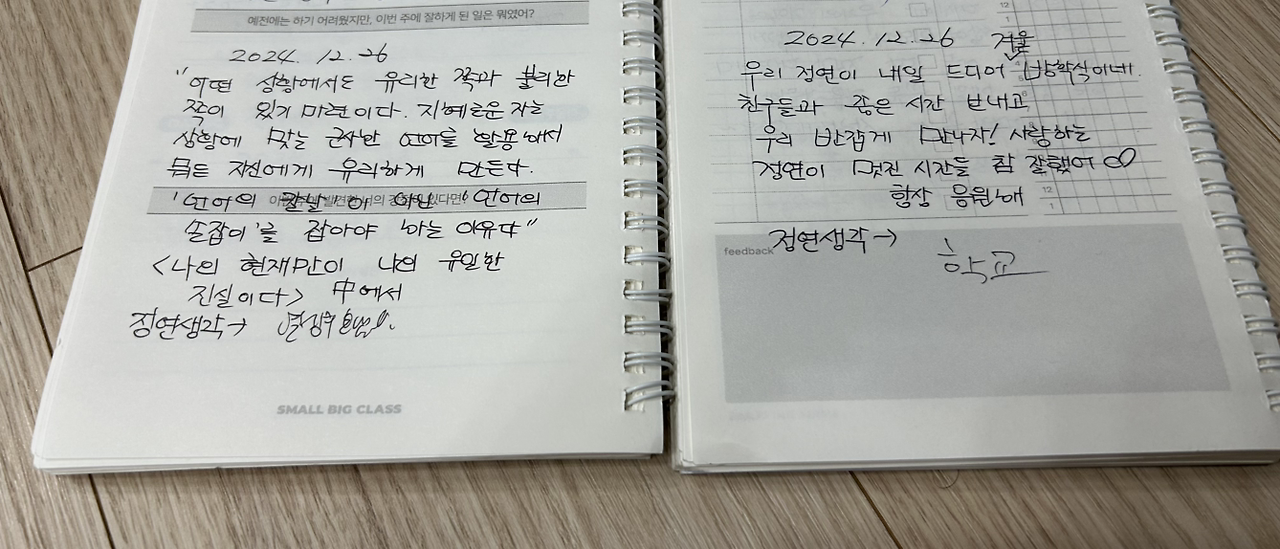 예전에는 하기 어려웠지만, 이번 주에 잘하게 된 일은 뭐였어?
2024. 12. 26
"어떤 상황에서도 유리한 쪽과 불리한
쪽이 있기 마련이다. 지혜로운 자는
상황에 맞는 근사한 언어를 활용해서
모든 자신에게 유리하게 만든다.
'언어의 칼날'이 아닌 '언어의
손잡이'를 잡아야 하는 이유다"
<나의 현재만이 나의 유일한
진실이다> 中에서
정연생각→
SMALL BIG CLASS
2024. 12. 26 겨울
우리 정연이 내일 드디어 방학식이네.
친구들과 좋은 시간 보내고
우리 반갑게 만나자! 사랑하는
정연이 멋진 시간들 참 잘했어
항상 응원해
feedback 정연생각→ 학교